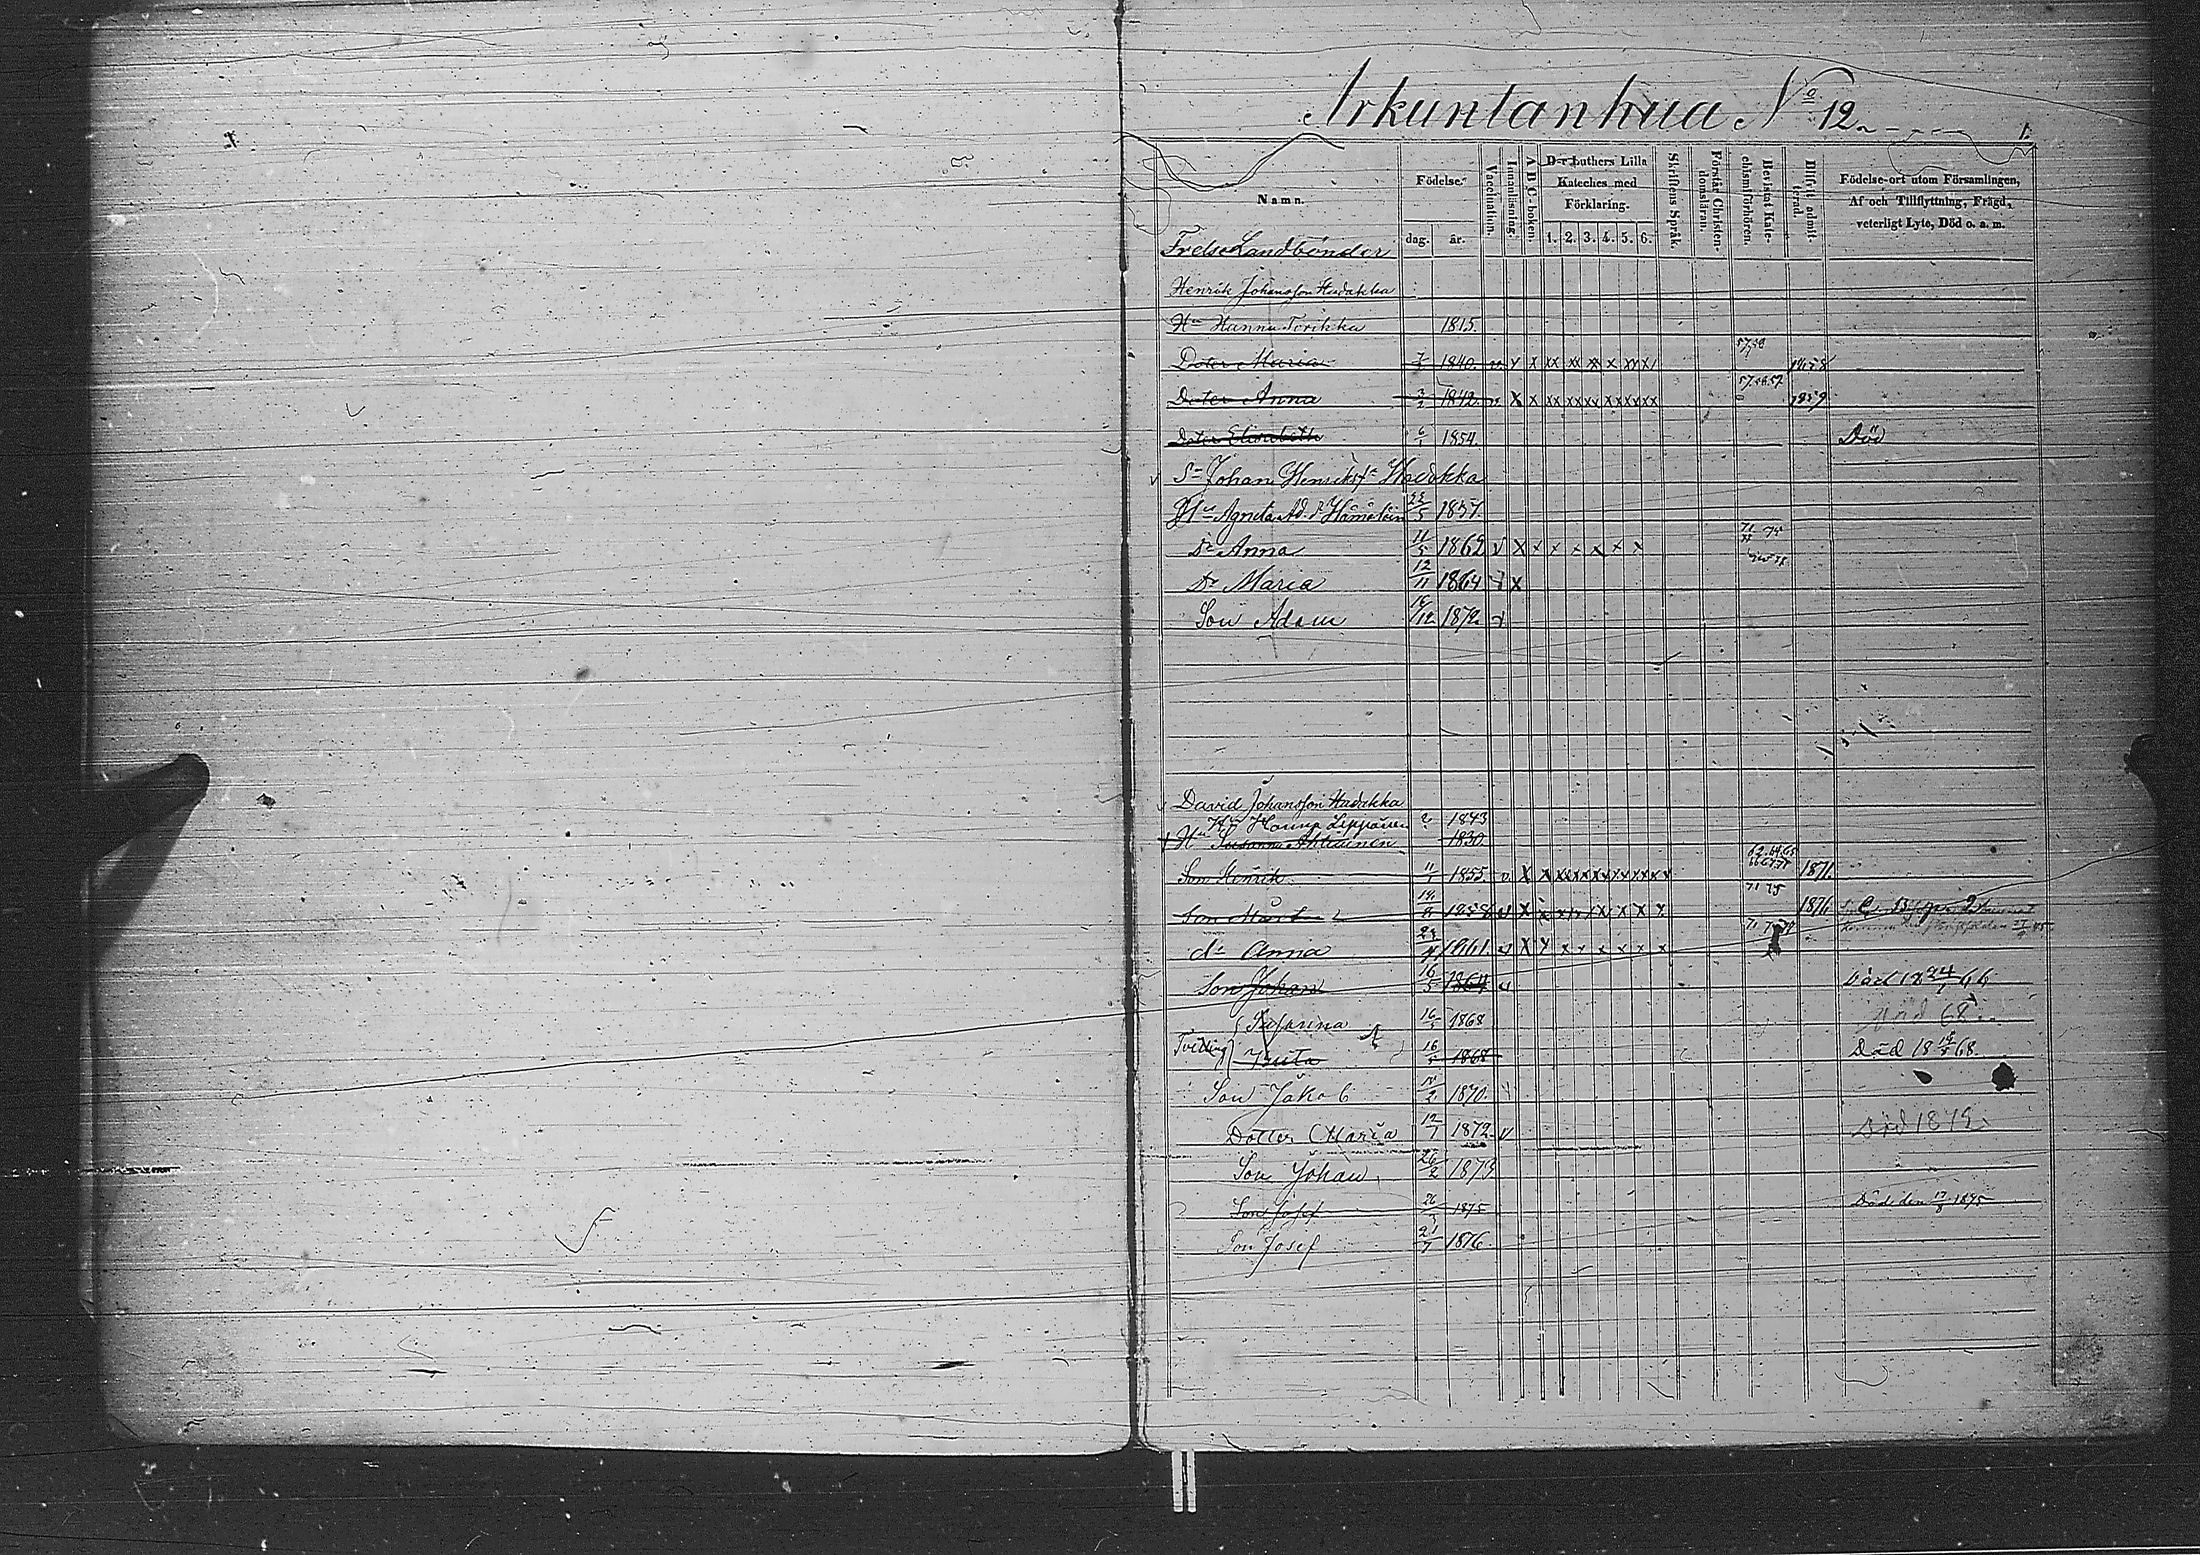 Arkuntanhua No 12.
1.
Namn.
Födelse.
dag.
år.
Vaccination.
Innanläsning.
A B C-boken.
D:r Luthers Lilla
Kateches med
Förklaring.
1. 2. 3. 4. 5. 6.
Skriftens Språk.
Förstår Christen-
domsläran.
Bevistat Kate-
chismiförhören.
Blifvit admit-
terad.
Födelse-ort utom Församlingen,
Af och Tillflyttning, Frägd,
veterligt Lyte, Död o. a. m.
Frelse Landbönder
Henrik Johansson Hudakka
Hu Hanna 1815.
Doter Maria 1840. v. x x xx xx xx x xx x 1858
Doter Anna 1842 v x x xx xx xx xx xx xx 57.58.59 1859
Doter Elisabeth 6/1 1854. Död
Sn Johan Henriksn Hudakka
Hu Agneta Ad. d. 22/5 1837.
Dr Anna 11/5 1862 v x x x x x x x x 75
Dr Maria 12/11 1864 v x
Son Adam 16/12 1872. v
David Johansson Hudakka
Hu Hanna Lippänen 1843
Hu Susanna 1830
Son Henrik 11/1 1855 v. x x xx xx xx xx xx xx 1871.
Son Mårt 1858 v x x xx xx x x x x 71 75 1876
dr Anna 1861. v x x x x x x x x
Son Johan 16/5 1864 v Död 18 24/1 66
Tvilling Susanna 16/5 1868 Död 68
Brita 16/5 1868 Död 18 68.
Son Jakob 2 1870.
Dotter Maria 12/1 1872 v Död 187
Son Johan 26/2 1873
Son Josef 26 1875 Döde den 1875
Son Josef 21/7 1876